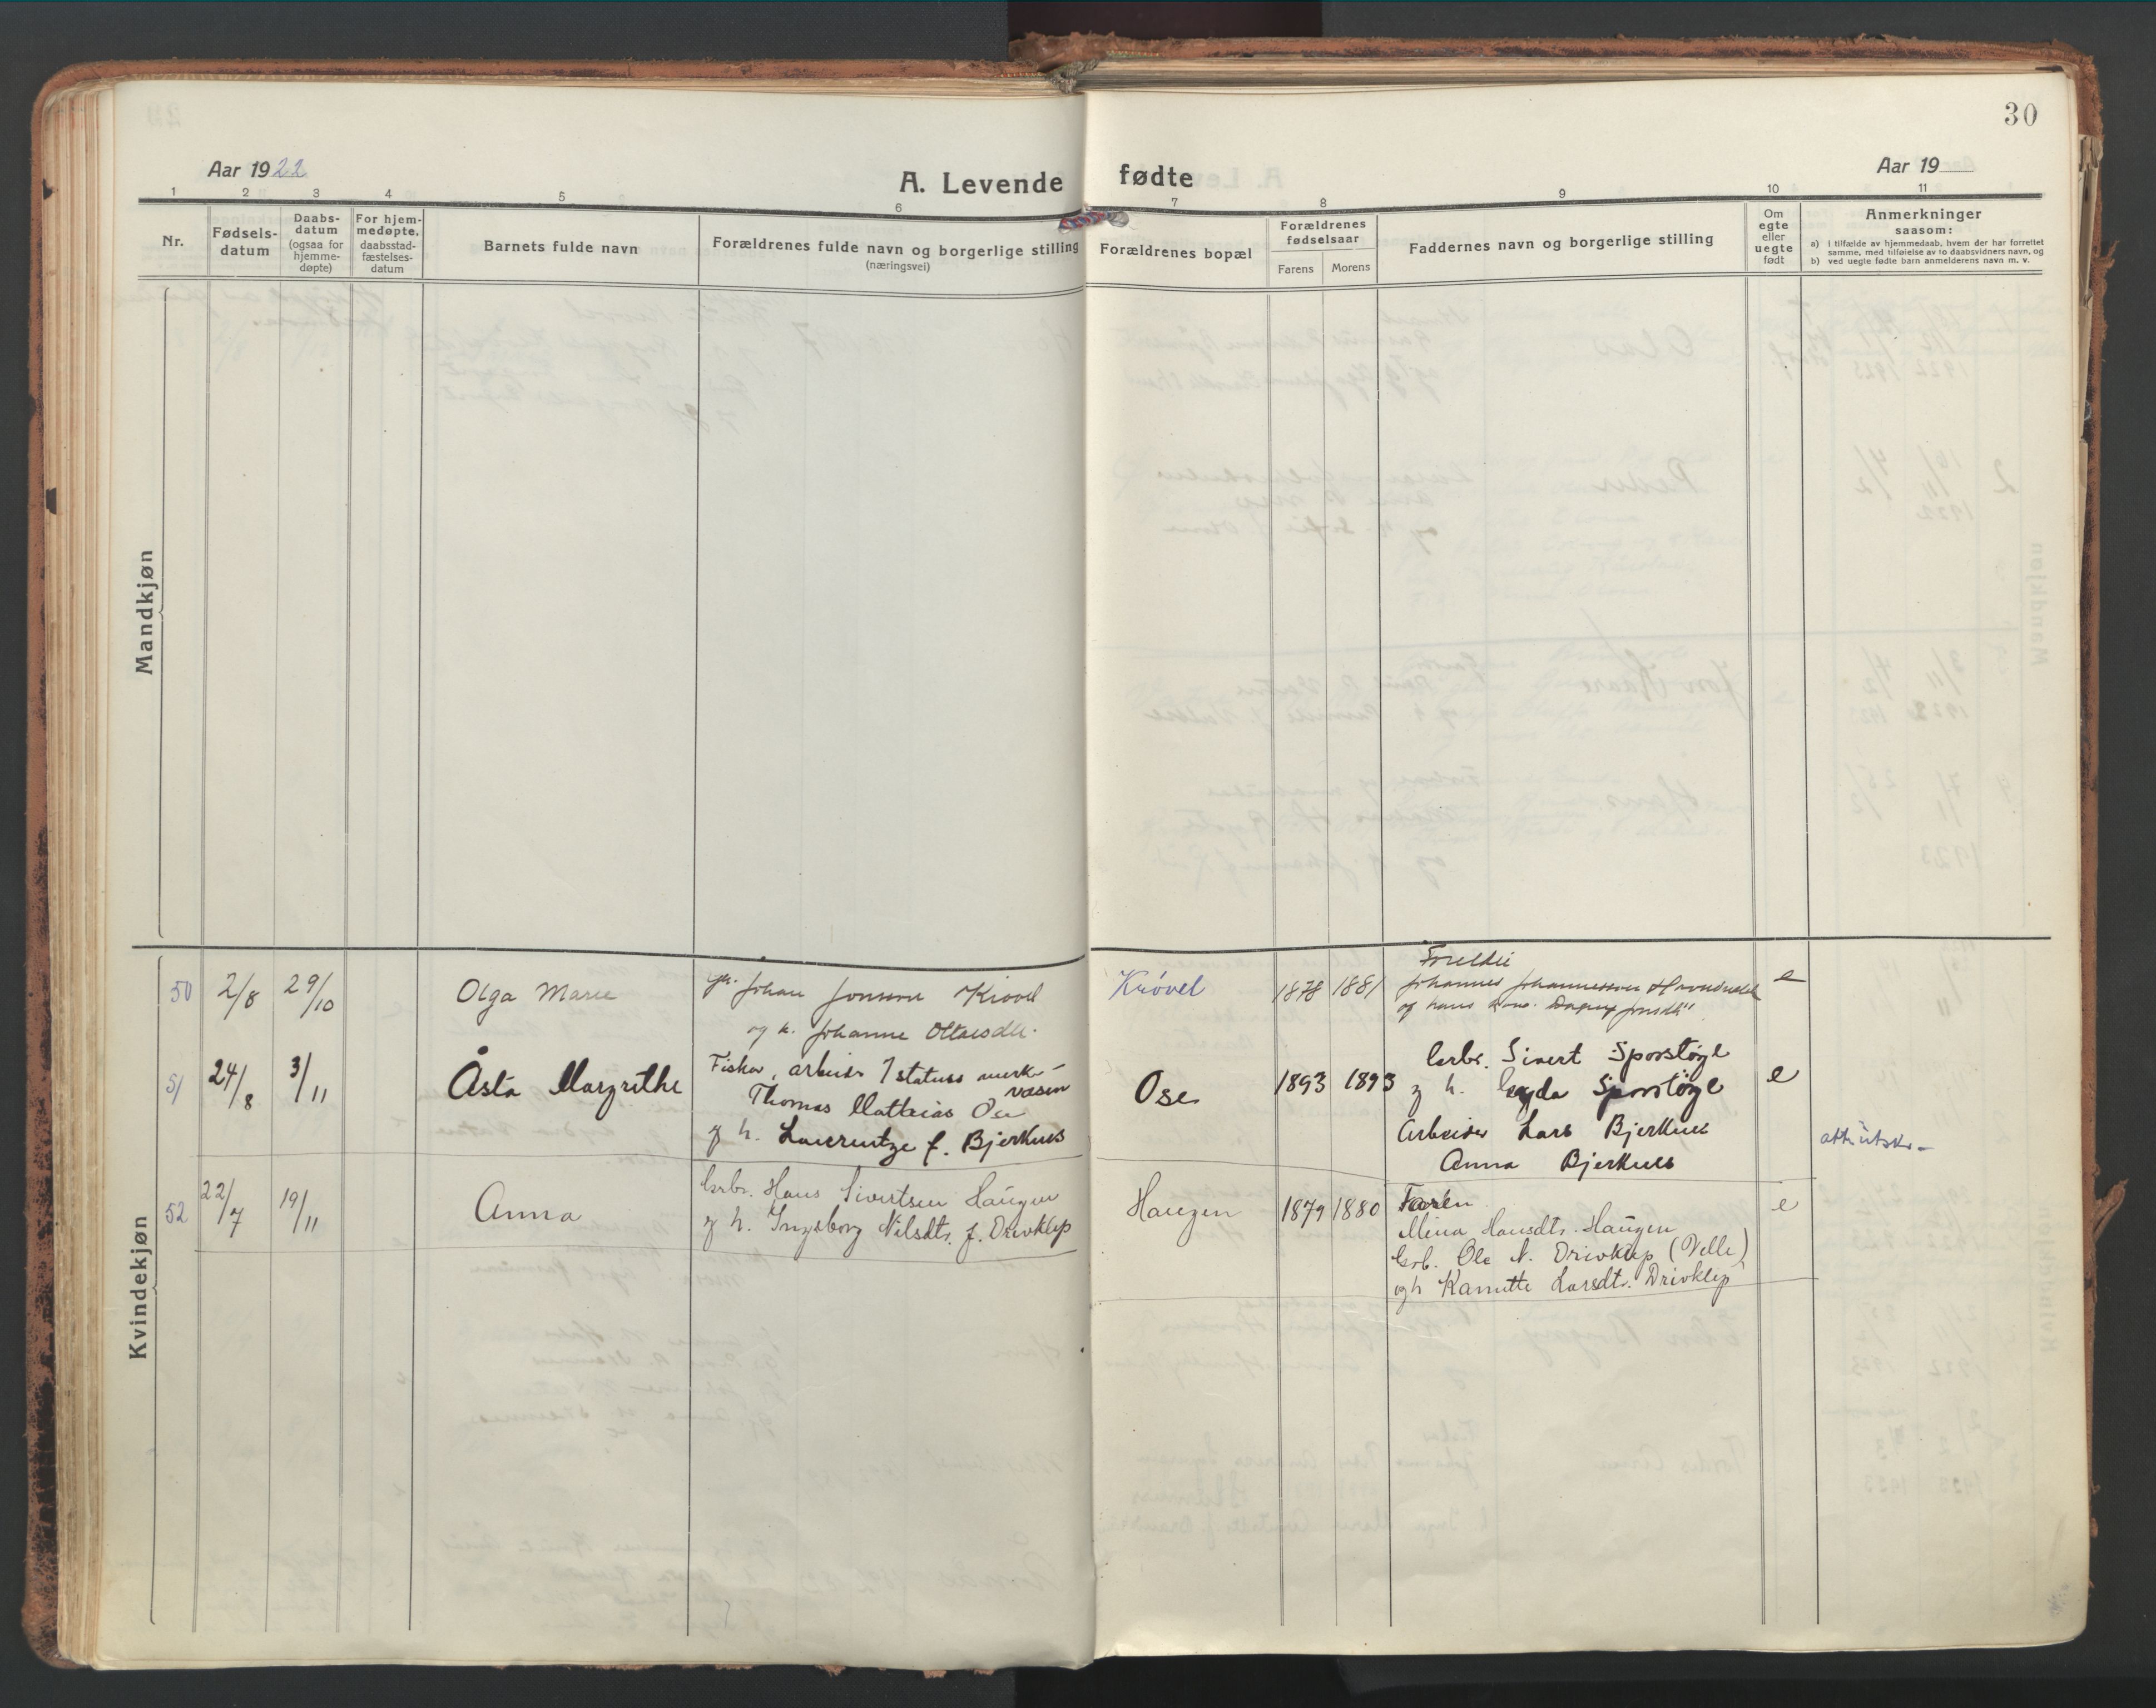 30
Aar 1922
A. Levende fødte
Aar 19
1 2 3 4 5 6 7 8 9 10 11
Nr.
Fødsels-
datum
Daabs-
datum
(ogsaa for
hjemme-
døpte)
For hjem-
medøpte.
daabsstad-
fæstelses-
datum
Barnets fulde navn
Forældrenes fulde navn og borgerlige stilling
(næringsvei)
Forældrenes bopæl
Forældrenes
fødselsaar
Farens Morens
Faddernes navn og borgerlige stilling
Om
egte
eller
uegte
født
Anmerkninger
saasom:
a) i tilfælde av hjemmedaab, hvem der har forrettet
samme, med tilføielse av to daabsvidners navn, og
b) ved uegte fødte barn anmelderens navn m. v.
Mandkjøn
Kvindekjøn
50 2/8 29/10 Olga Marie
Johan Jonsson Krovel
og k. Johanne
Krövel 1878 1881
Johannes Johannesson
og hans
e
51 24/8 3/11 Åsta Margrethe
Fisker, arbeider i statens
væsen
Thomas Mathias Ose
g h. Laurentze f. Bjerknes
Ose 1893 1893
Grbr. Sivert Sporstøyl
g h. Gyda Sporstøyl
Arbeider Lars Bjerknes
Anna Bjerknes
e
52 22/7 19/11 Anna
Grbr. Hans Sivertsen Haugen
g h. Ingeborg Nilsdtr. f. Drivklep
Haugen 1879 1880
Faren
Mina Hansdtr. Haugen
Grb. Ole N. Drivklep (Velle)
og h Kanutte Larsdtr. Drivklep
e